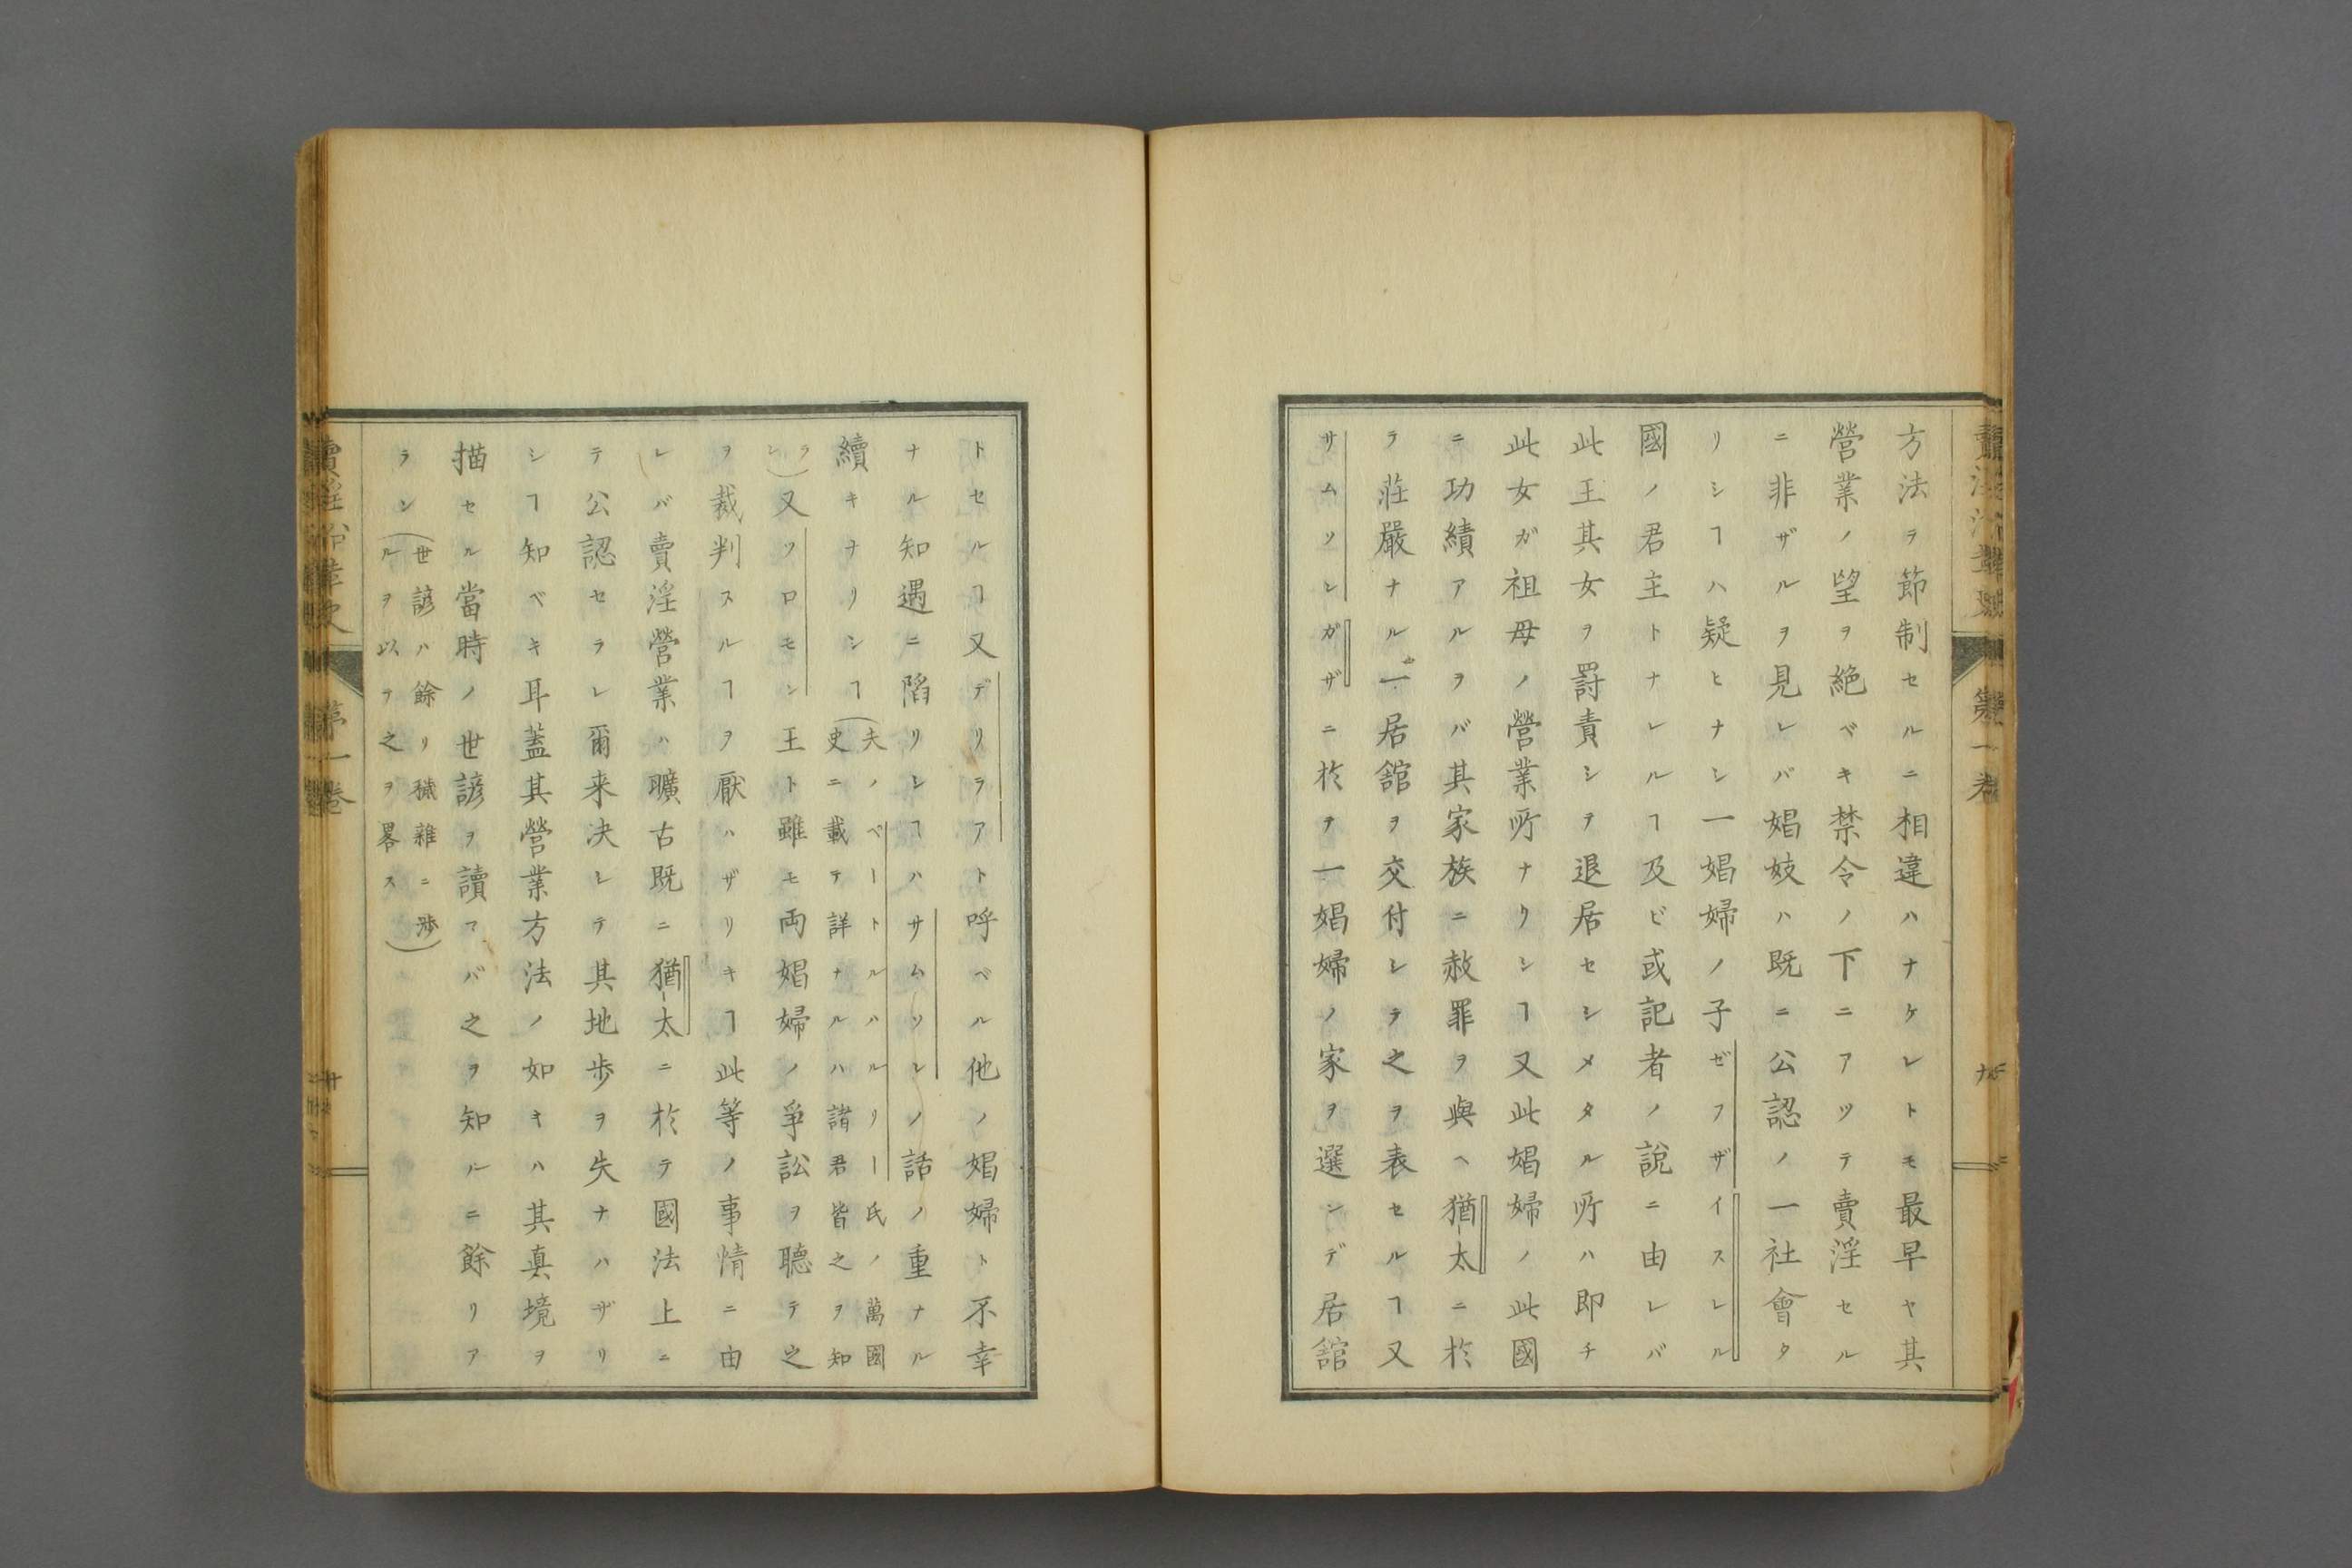 方法ヲ節制セルニ相違ハナケレトモ最早ヤ其
營業ノ望ヲ絶ベキ禁令ノ下ニアツテ賣淫セル
ニ非ザルヲ見レバ娼妓ハ既ニ公認ノ一社會タ
リシヿハ疑ヒナシ一娼婦ノ子ゼフザイスレル
國ノ君主トナレルヿ及ビ或記者ノ説ニ由レバ
此王其女ヲ罸責シテ退居セシメタル所ハ即チ
此女ガ祖母ノ營業所ナリシヿ又此娼婦ノ此國
ニ功績アルヲバ其家族ニ赦罪ヲ與ヘ猶太ニ於
テ莊嚴ナル一居舘ヲ交付シテ之ヲ表セルヿ又
サムソンガザニ於テ一娼婦ノ家ヲ選ンデ居舘
トセルヿ又デリラアト呼ベル他ノ娼婦ト不幸
ナル知遇ニ陷リシヿハサムソンノ話ノ重ナル
續キナリシヿ(夫ノベートルハルリー氏ノ萬國
史ニ載テ詳ナルハ諸君皆之ヲ知
ラ
ン)又ソロモン王ト雖モ両娼婦ノ爭訟ヲ聽テ之
ヲ裁判スルヿヲ厭ハザリキヿ此等ノ事情ニ由
レバ賣淫營業ハ曠古既ニ猶太ニ於テ國法上ニ
テ公認セラレ爾来决シテ其地歩ヲ失ナハザリ
シヿ知ベキ耳蓋其營業方法ノ如キハ其眞境ヲ
描セル當時ノ世諺ヲ讀マバ之ヲ知ルニ餘リア
ラン(世諺ハ餘リ穢雜ニ渉
ルヲ以テ之ヲ畧ス)
第一卷